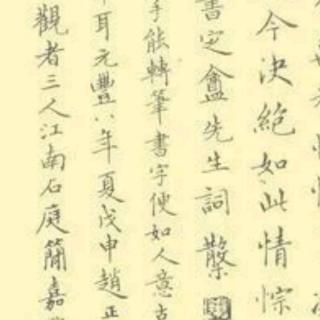 今決絕如此情悰
書定盦先生詞 槃
手能轉筆書字便如人意古
耳元豐八年夏戊申趙正
觀者三人江南石庭簡嘉